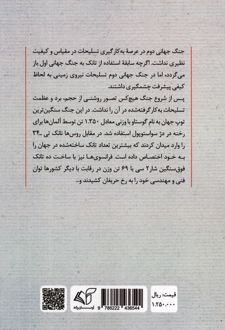 جنگ جهانی دوم در عرصهٔ به‌کارگیری تسلیحات در مقیاس و کیفیت
نظیری نداشت. اگرچه سابقهٔ استفاده از تانک به جنگ جهانی اول باز
می‌گردد، اما در جنگ جهانی دوم تسلیحات نیروی زمینی به لحاظ
کیفی پیشرفت چشمگیری داشتند.
پس از شروع جنگ هیچ‌کس تصور روشنی از حجم، برد و عظمت
تسلیحات به‌کارگرفته‌شده در آن را نداشت. در این جنگ سنگین‌ترین
توپ جهان به نام گوستاو با وزنی معادل ۱.۳۵۰ تن توسط آلمان‌ها برای
رخنه در دژ سواستوپول استفاده شد. در مقابل روس‌ها تانک تی ـ۳۴
را وارد میدان کردند که بیشترین تعداد تانک ساخته‌شده در جهان را
به خود اختصاص داده است. فرانسوی‌ها نیز با ساخت ده تانک
فوق‌سنگین شار۲ سی با ۶۹ تن وزن در رقابت با دیگر کشورها توان
فنی و مهندسی خود را به رخ حریفان کشیدند و..
قیمت: ریال
۱.۲۵۰.۰۰۰
9 786222 436544